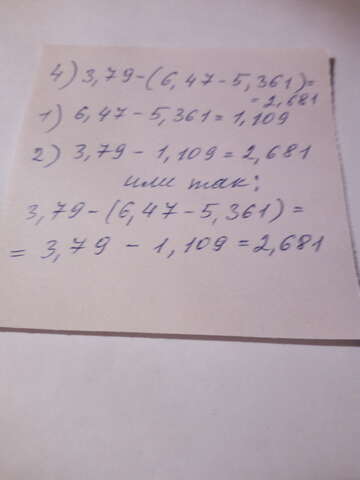 4) 3,79-(6,47-5,361)=
=2,681
1) 6,47-5,361=1,109
2) 3,79-1,109=2,681
или так:
3,79-(6,47-5,361)=
= 3,79 - 1,109=2,681